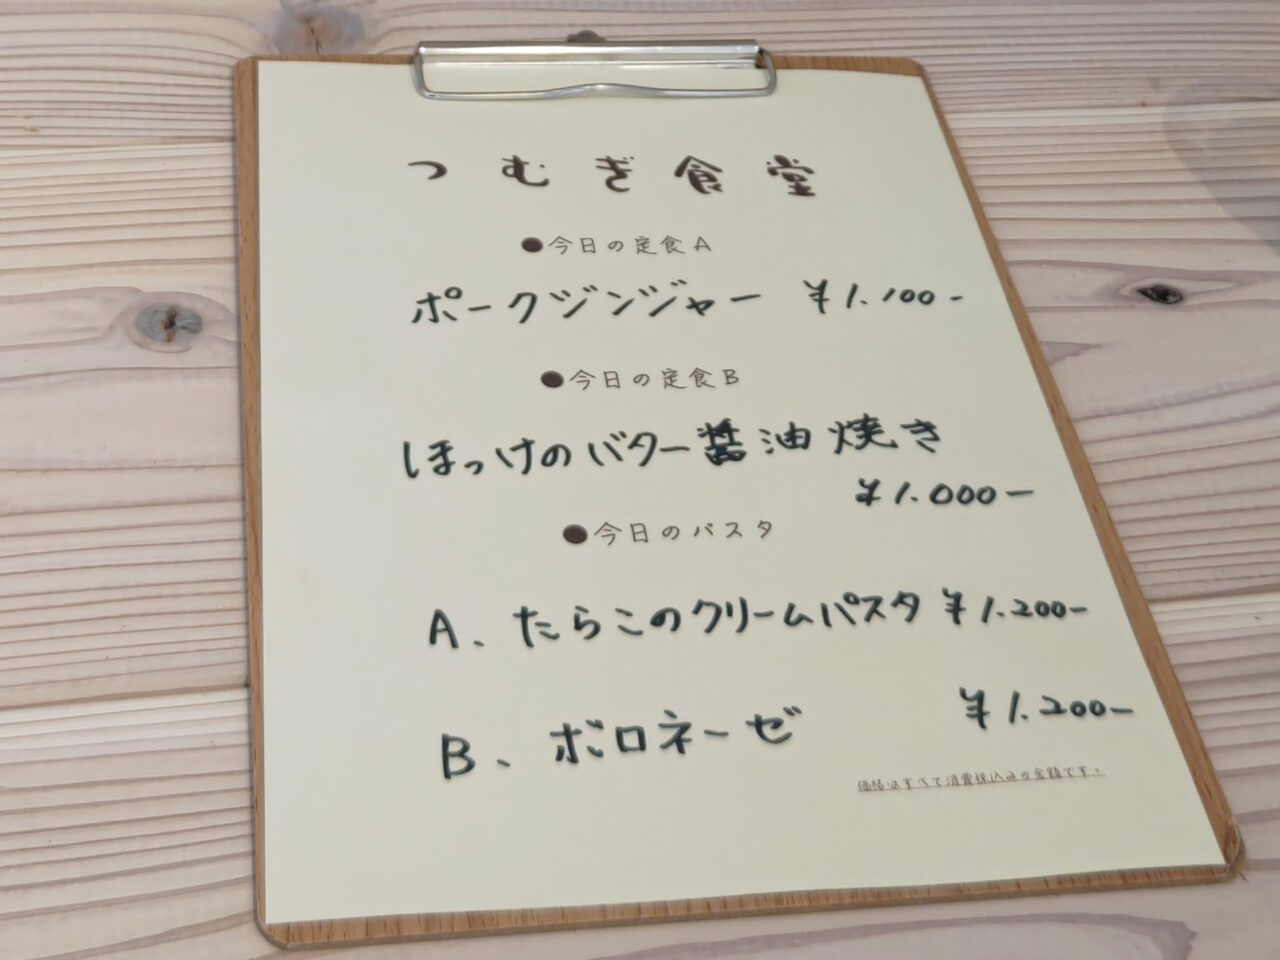 つむぎ食堂
●今日の定食A
ポークジンジャー ¥1.100-
●今日の定食B
ほっけのバター醤油焼き
¥1.000-
●今日のパスタ
A、たらこのクリームパスタ ¥1.200-
B、ボロネーゼ ¥1.200-
価格はすべて消費税込みの金額です。